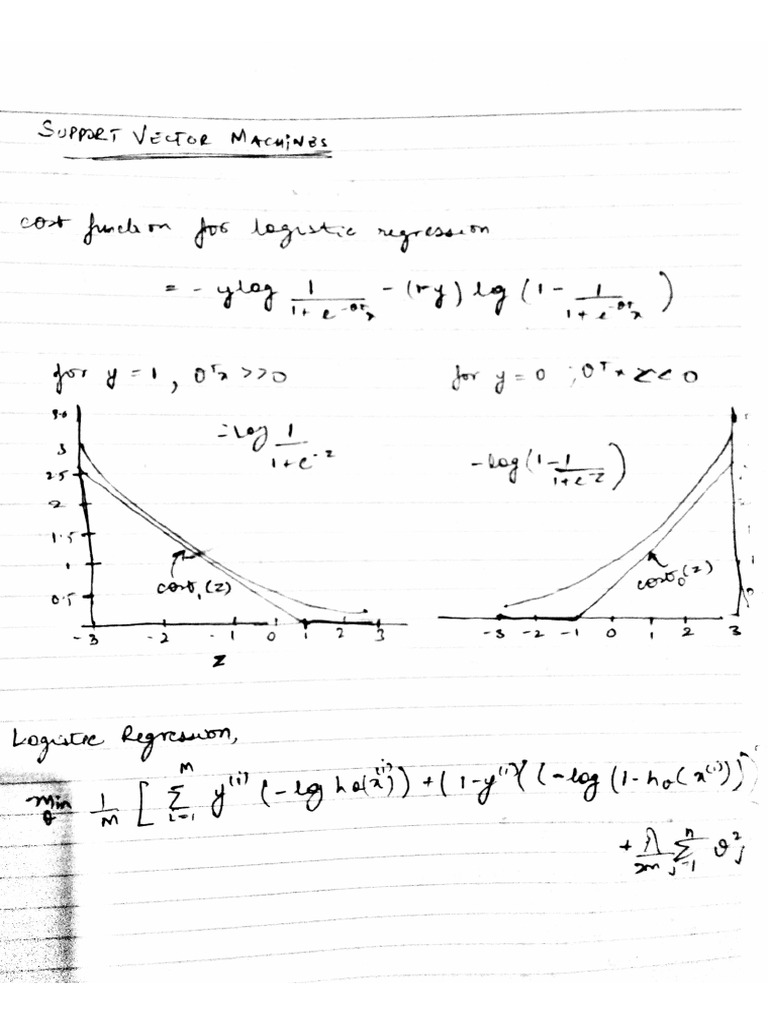 SUPPORT VECTOR MACHINES
cost function for logistic regression
= - y log 1/(1 + e^{-θᵀx}) - (1-y) log (1 - 1/(1 + e^{-θᵀx}))
for y = 1, θᵀx >> 0
for y = 0 ; θᵀx << 0
= log 1/(1 + e^{-z})
- log (1 - 1/(1 + e^{-z}))
3
2.5
2
1.5
1
0.5
cost₁(z)
cost₀(z)
-3 -2 -1 0 1 2 3
-3 -2 -1 0 1 2 3
z
Logistic Regression,
min θ 1/m [ Σ_{i=1}^{m} y^{(i)} (-log hθ(x^{(i)})) + (1-y^{(i)}) ((-log (1-hθ(x^{(i)}))
+ λ/2m Σ_{j=1}^{n} θ_j^2